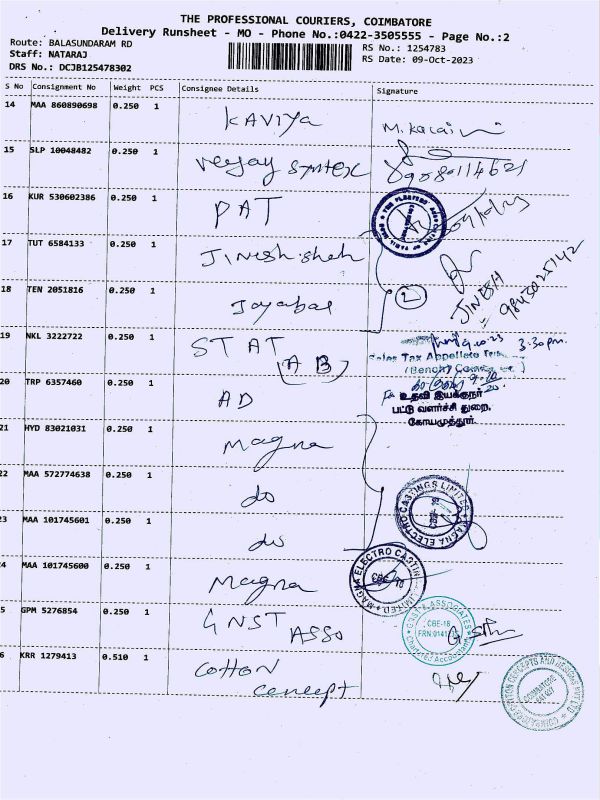 THE PROFESSIONAL COURIERS, COIMBATORE
Delivery Runsheet - MO - Phone No.:0422-3505555 - Page No.:2
Route: BALASUNDARAM RD
RS No.: 1254783
Staff: NATARAJ
RS Date: 09-Oct-2023
DRS No.: DCJB125478302
S No Consignment No Weight PCS Consignee Details Signature
14 MAA 860890698 0.250 1 KAVIYA
15 SLP 10048482 0.250 1
16 KUR 530602386 0.250 1 PAT
17 TUT 6584133 0.250 1 Jinesh shah
JINESH
18 TEN 2051816 0.250 1 Jayabal 2
19 NKL 3222722 0.250 1 STAT
3.30pm.
Sales Tax Appellate
(Bench)
(AB)
20 TRP 6357460 0.250 1 AD
உதவி இயக்குநர்
பட்டு வளர்ச்சி துறை,
கோயமுத்தூர்.
21 HYD 83021031 0.250 1 Magna
22 MAA 572774638 0.250 1 do
MAGNA ELECTRO CASTINGS LIMITED
23 MAA 101745601 0.250 1 do
24 MAA 101745600 0.250 1 Magna
MAGNA ELECTRO CASTINGS LIMITED
25 GPM 5276854 0.250 1 GNST
ASSO
& ASSOCIATES
CBE-18
Chartered Accountants
26 KRR 1279413 0.510 1 COTTON
concept
COTTON CONCEPTS AND DESIGNS PVT LTD
COIMBATORE